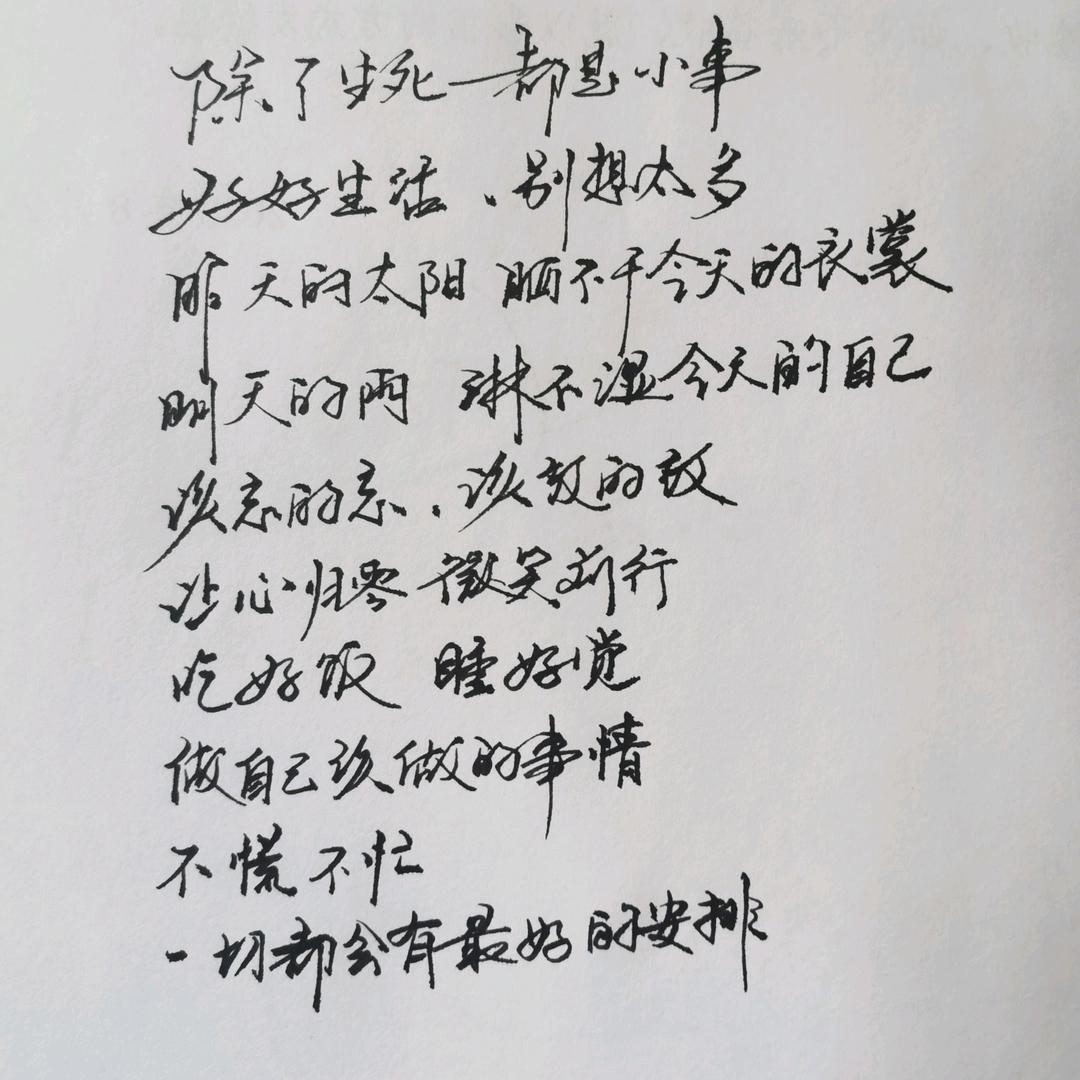 除了生死都是小事
好好生活、别想太多
昨天的太阳 晒不干今天的衣裳
明天的雨 淋不湿今天的自己
该忘的忘、该放的放
让心归零 微笑前行
吃好饭 睡好觉
做自己该做的事情
不慌不忙
一切都会有最好的安排